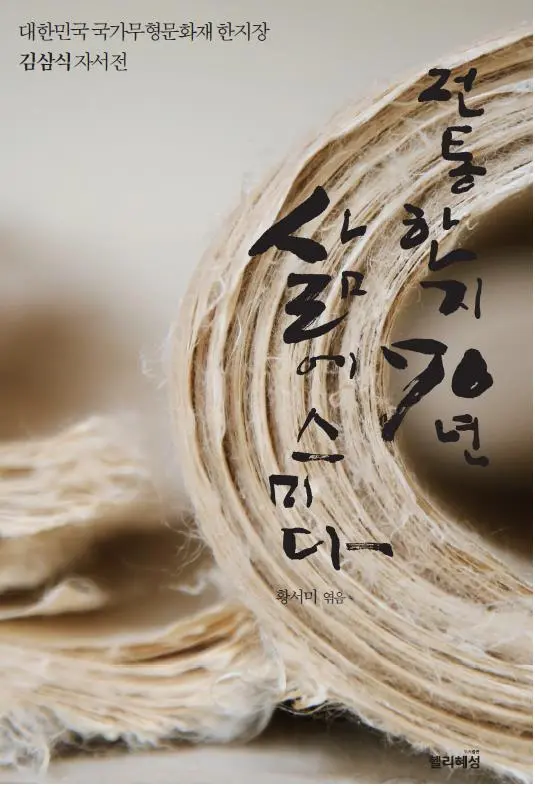 대한민국 국가무형문화재 한지장
김삼식 자서전
전통한지 70년
삶에 스미다
황서미 엮음
도서출판
헬리혜성